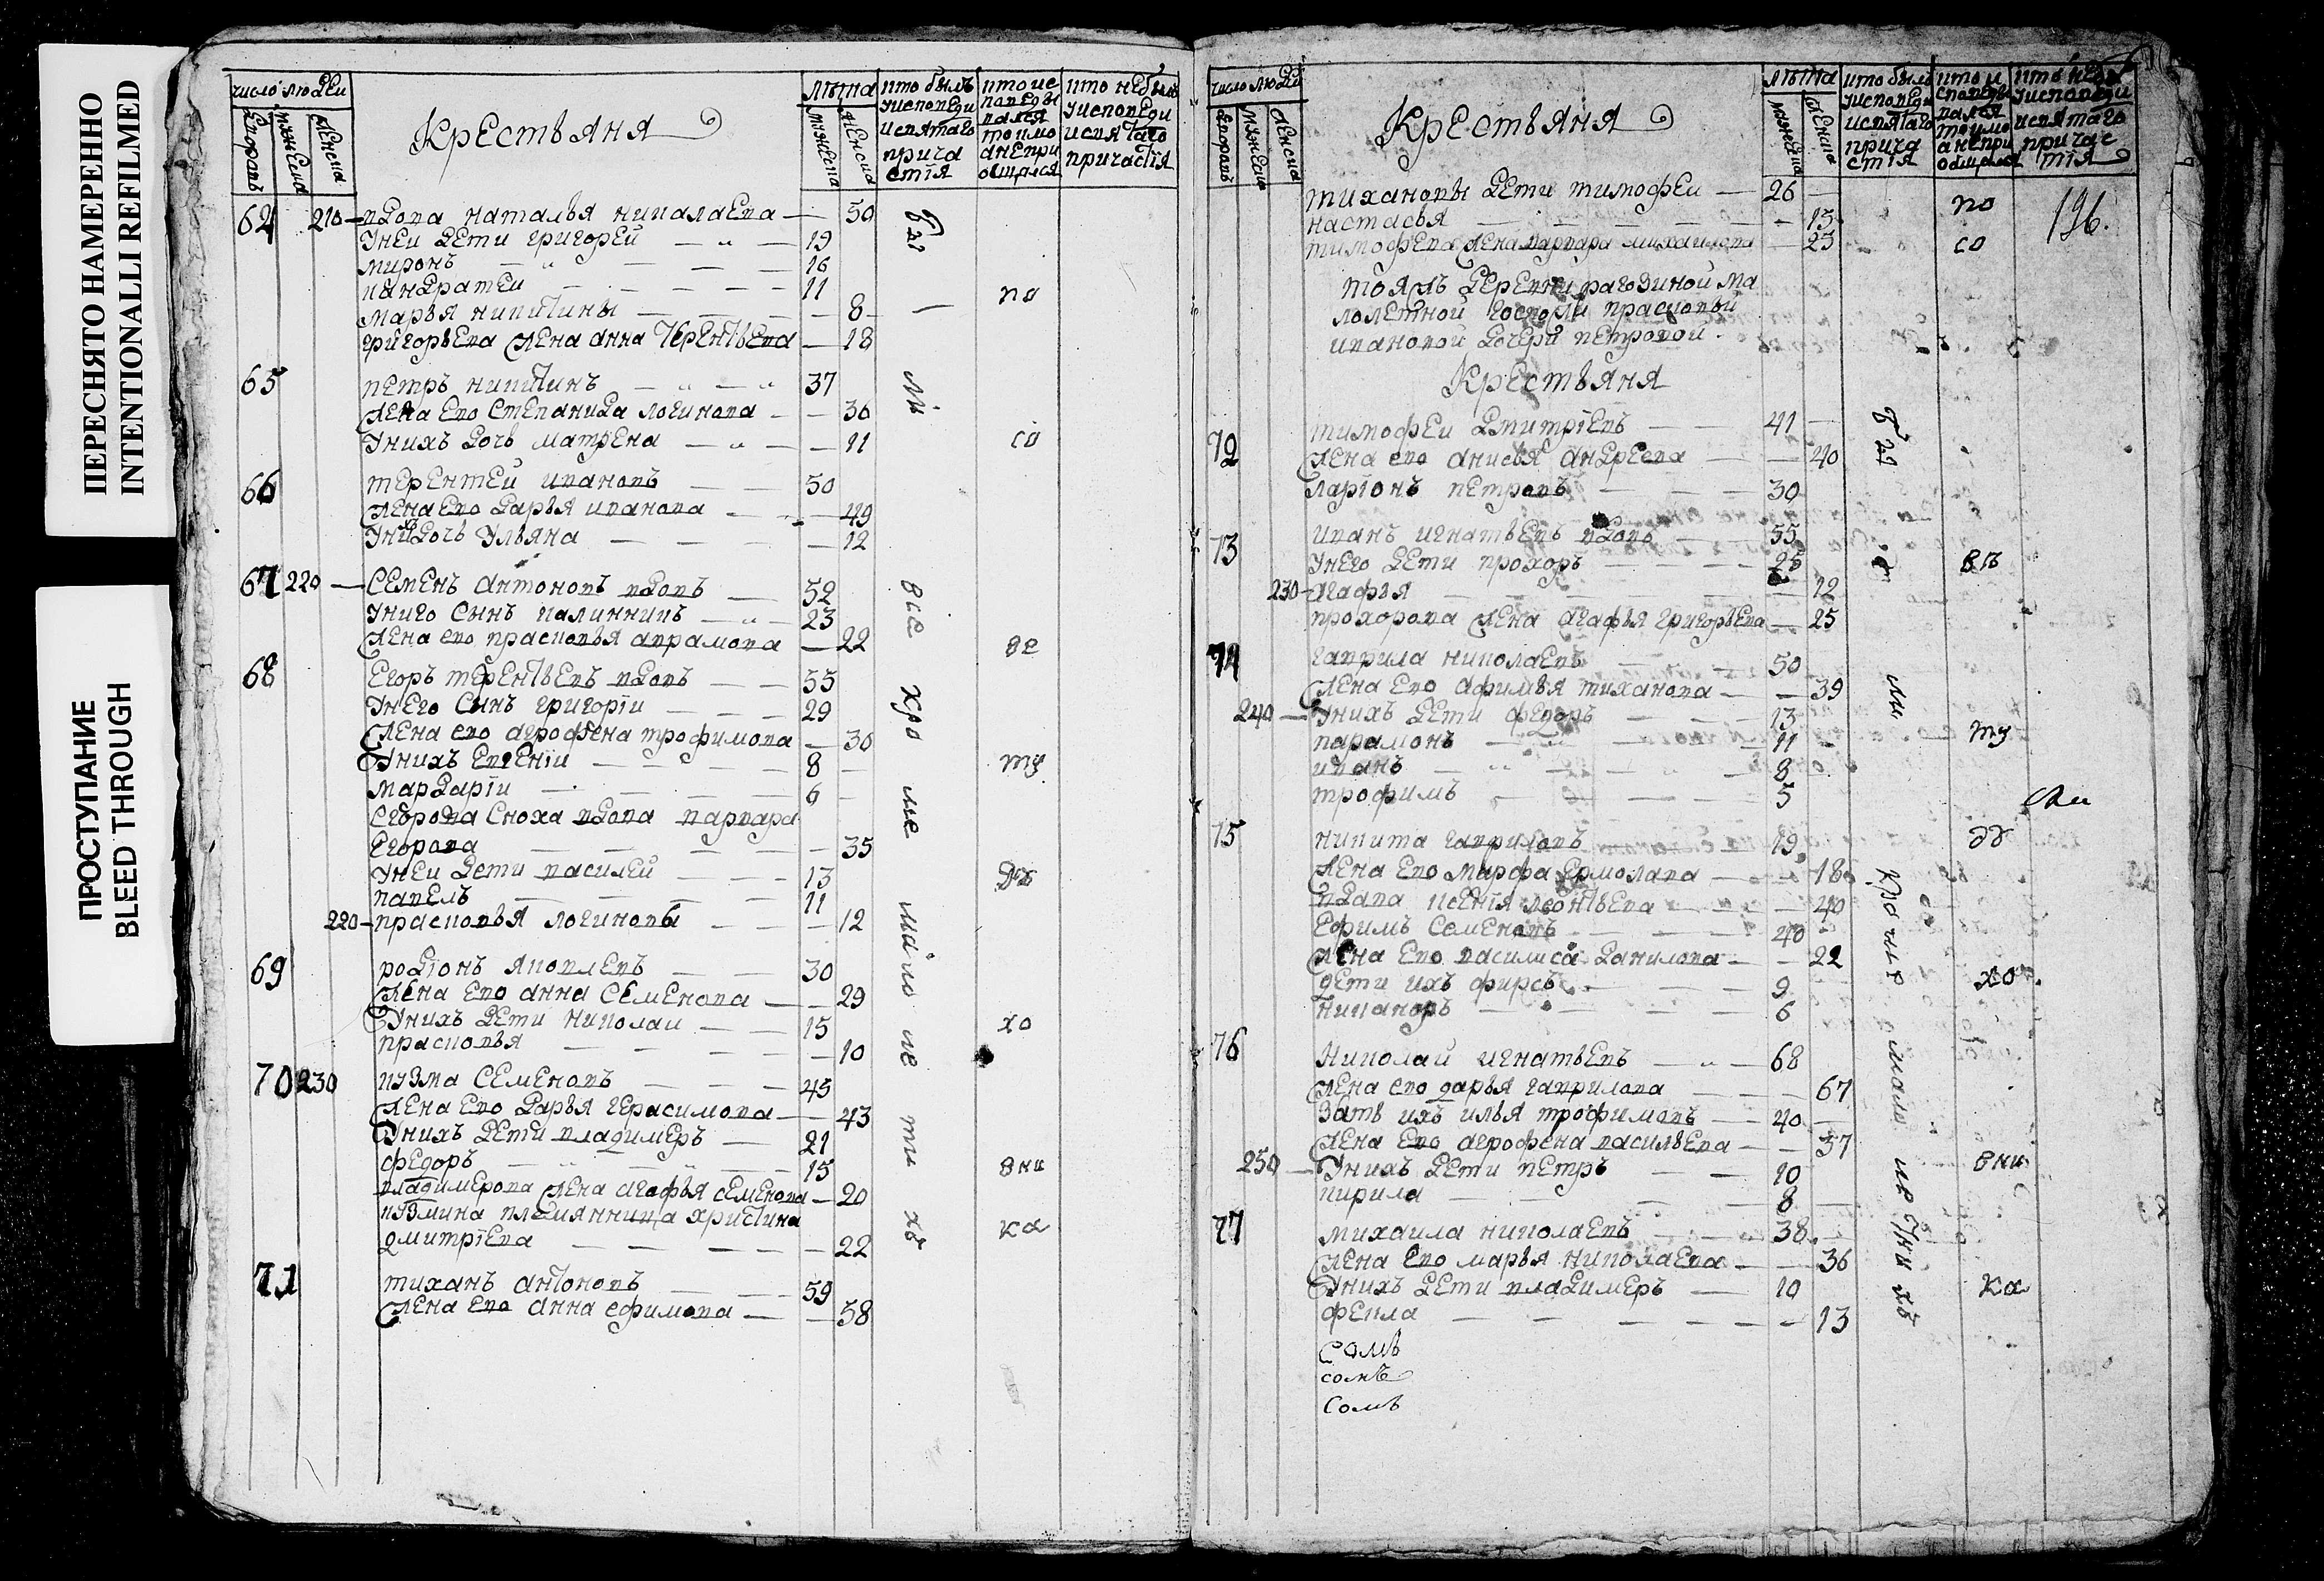 ПЕРЕСНЯТО НАМЕРЕННО
INTENTIONALLI REFILMED
ПРОСТУПАНИЕ
BLEED THROUGH
число людеи
Крестьяня
лѣта
кто былъ у исповеди и святаго причастїя
кто исповедывался токмо а не приобщался
кто не былъ у исповеди и святаго причастїя
64 210 вдова наталья николаева 50
у неи дети григореи 19
миронъ 16
кандратеи 11
марья никитины 8
григорьева жена анна терентьева 18
65 петръ никитинъ 37
жена ево степанида логинова 36
у нихъ дочь матрена 11
66 терентеи ивановъ 50
жена ево дарья иванова 49
у нихъ дочь ульяна 12
67 220 семенъ антоновъ вдовъ 52
у ниго сынъ калинникъ 23
жена ево прасковья аврамова 22
68 егоръ терентьевъ вдовъ 55
у него сынъ григорїи 29
жена ево агрофена трофимова 30
у нихъ евгенїи 8
мардарїи 6
егорова сноха вдова варвара
егорова 35
у неи дети василеи 13
павелъ 11
220 прасковья логиновы 12
69 родїонъ яковлевъ 30
жена ево анна семенова 29
у нихъ дети николаи 15
прасковья 10
70 230 кузма семеновъ 45
жена ево дарья герасимова 43
у нихъ дети владимеръ 21
федоръ 15
владимерова жена агафья семенова 20
кузмина племянница христина
дмитрїева 22
71 тиханъ антоновъ 59
жена ево анна ефимова 58
число людеи
Крестьяня
лѣта
кто былъ у исповеди и святаго причастїя
кто исповедывался токмо а не приобщался
кто не былъ у исповеди и святаго причастїя
196.
тихановы дети тимофеи 26
настасья 15
тимофева жена варвара михаилова 25
тояжъ деревни рагозиной ма
лолетной госпожи прасковьи
ивановой дочери петровой
Крестьяня
72 тимофеи дмитрїевъ 41
жена ево анисья андреева 40
ларїонъ петровъ 30
73 иванъ игнатьевъ вдовъ 55
у него дети прохоръ 26
230 агафья 12
прохорова жена агафья григорьева 25
74 гаврила николаевъ 50
жена ево афимья тиханова 39
240 у нихъ дети федоръ 13
парамонъ 11
иванъ 8
трофимъ 5
75 никита гавриловъ 19
жена ево марфа ермолава 18
вдава ксенїя леонтьева 40
ефимъ семеновъ 40
жена ево василиса данилова 22
дети ихъ фирсъ 9
никаноръ 6
76 николаи игнатьевъ 68
жена ево дарья гаврилова 67
зать ихъ илья трофимовъ 40
жена ево агрофена васильева 37
250 у нихъ дети петръ 10
кирила 8
77 михаила николаевъ 38
жена ево марья николаева 36
у нихъ дети владимеръ 10
фекла 13
сомъ
сомъ
сомъ